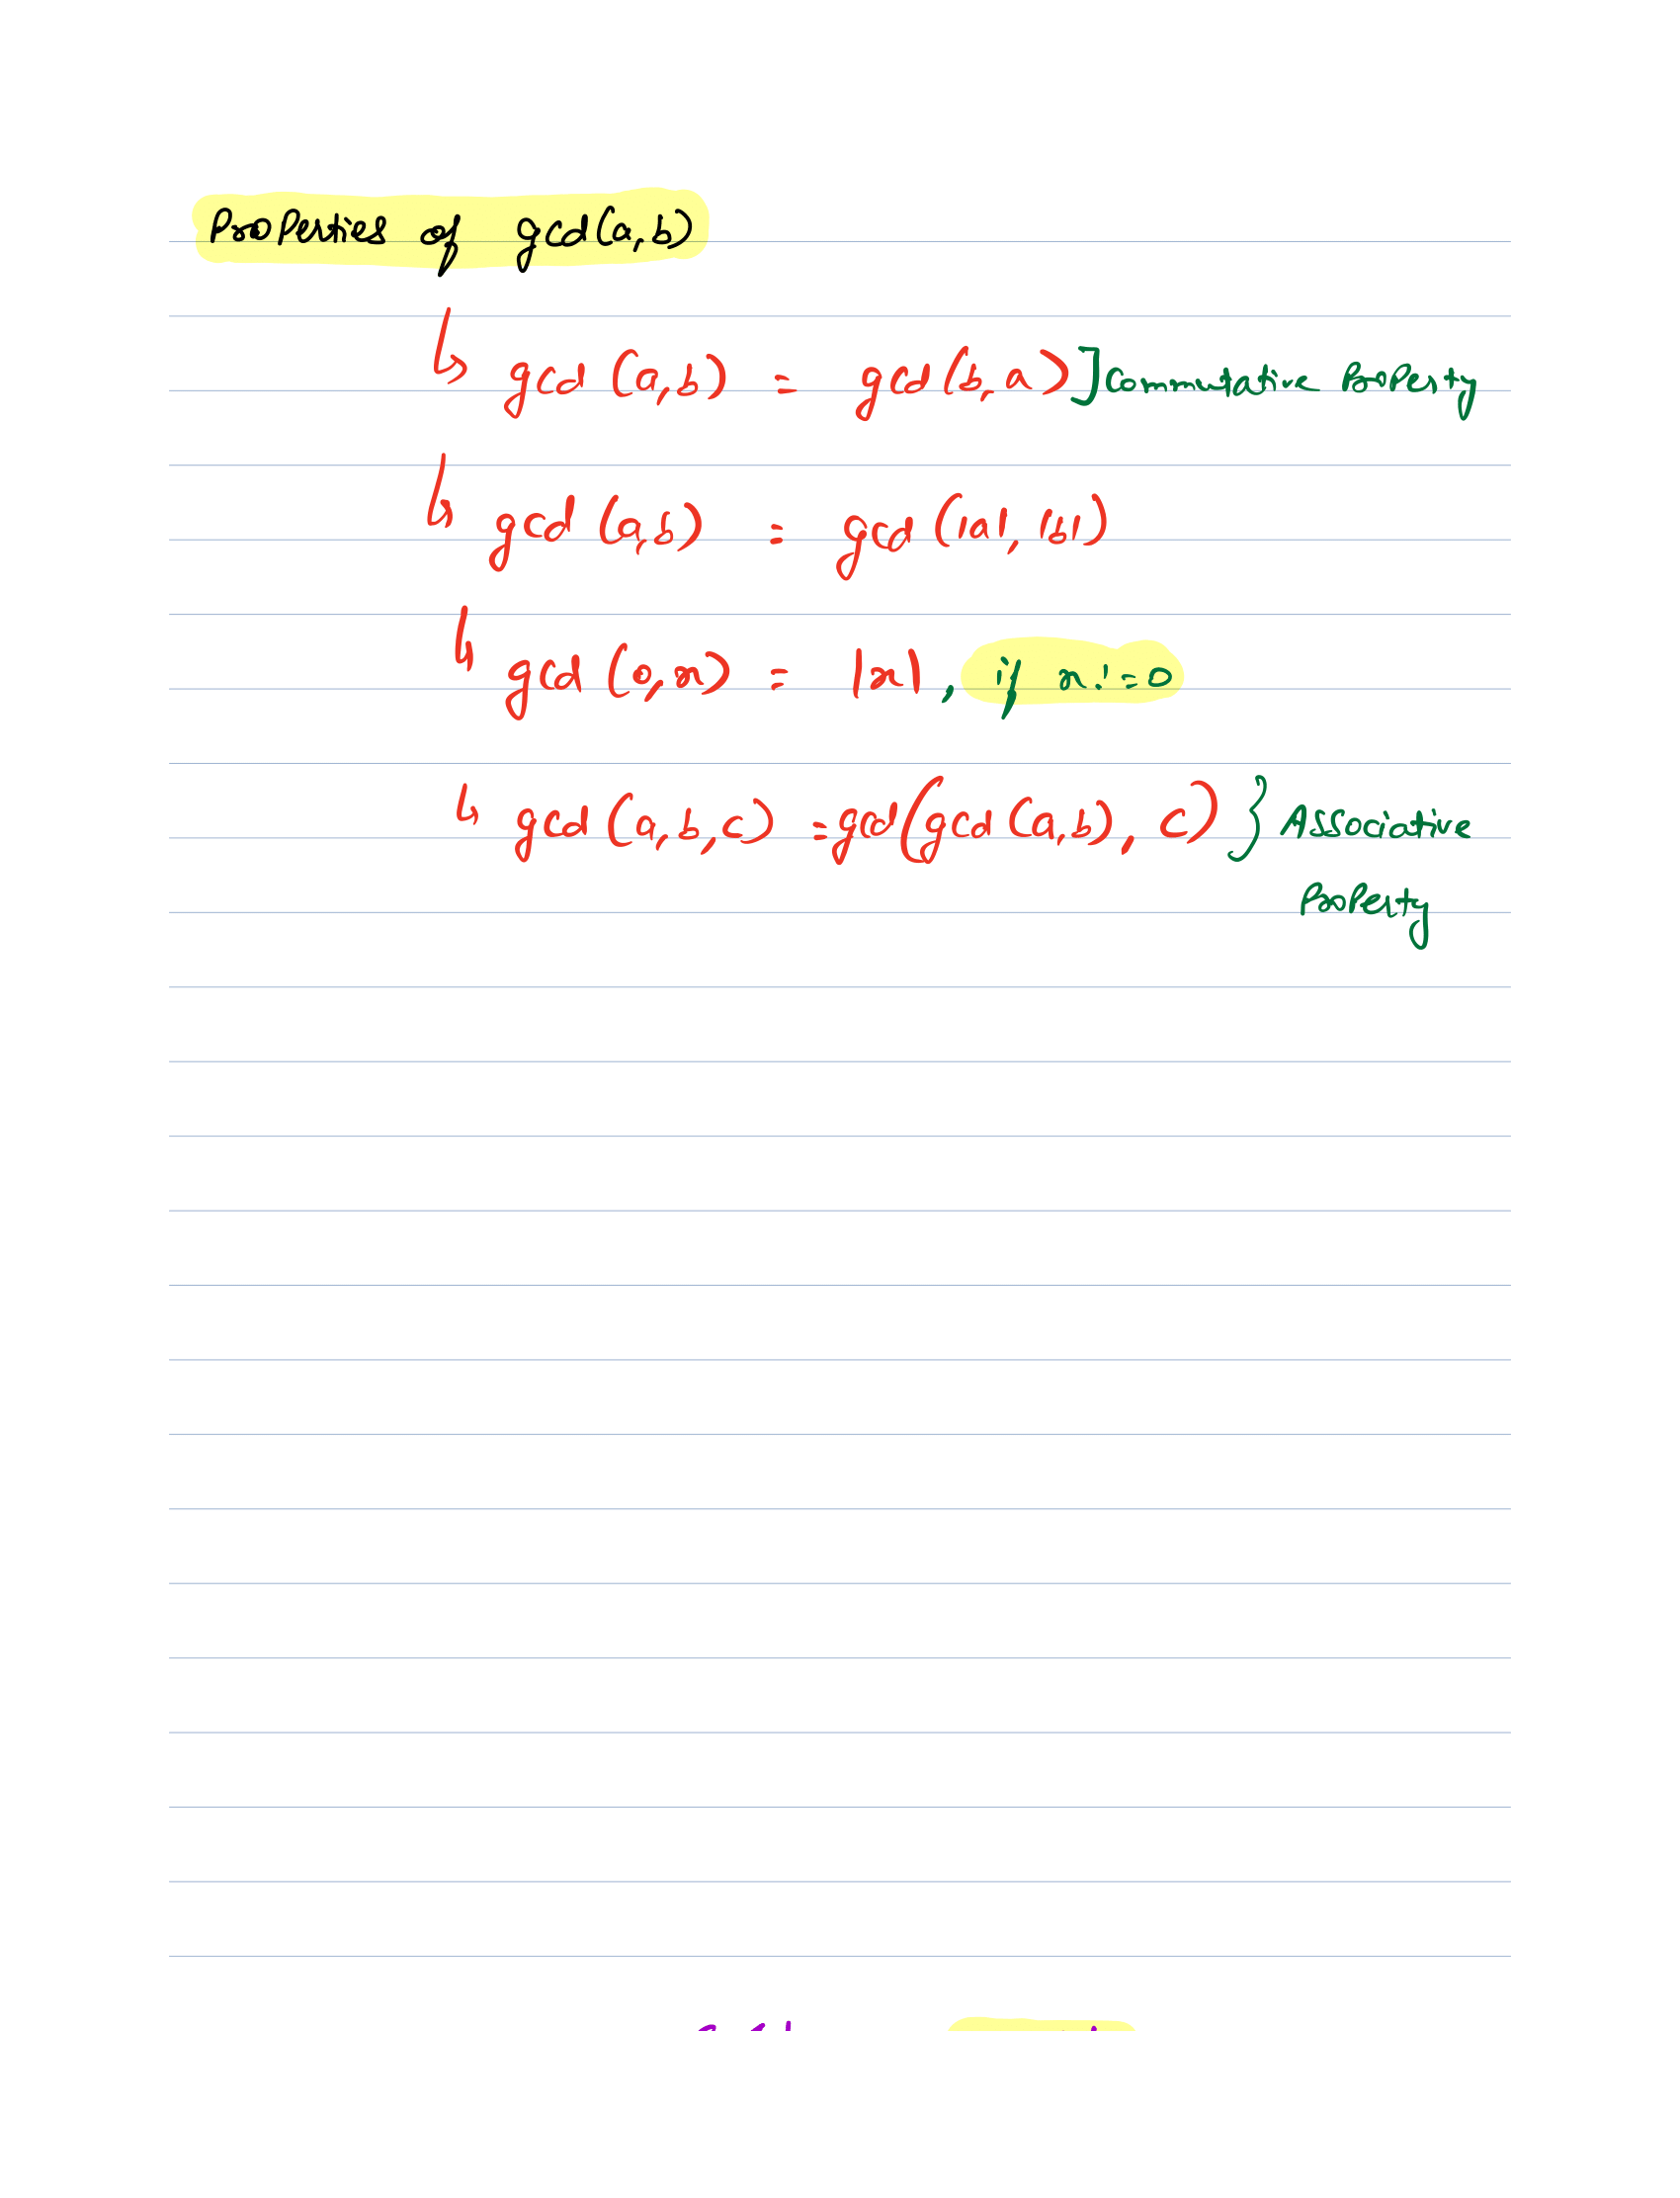 Properties of gcd(a,b)
↳ gcd (a,b) = gcd (b,a) ] Commutative Property
↳ gcd (a,b) = gcd (|a|, |b|)
↳ gcd (0,x) = |x|, if x != 0
↳ gcd (a,b,c) = gcd(gcd (a,b), c) } Associative
Property